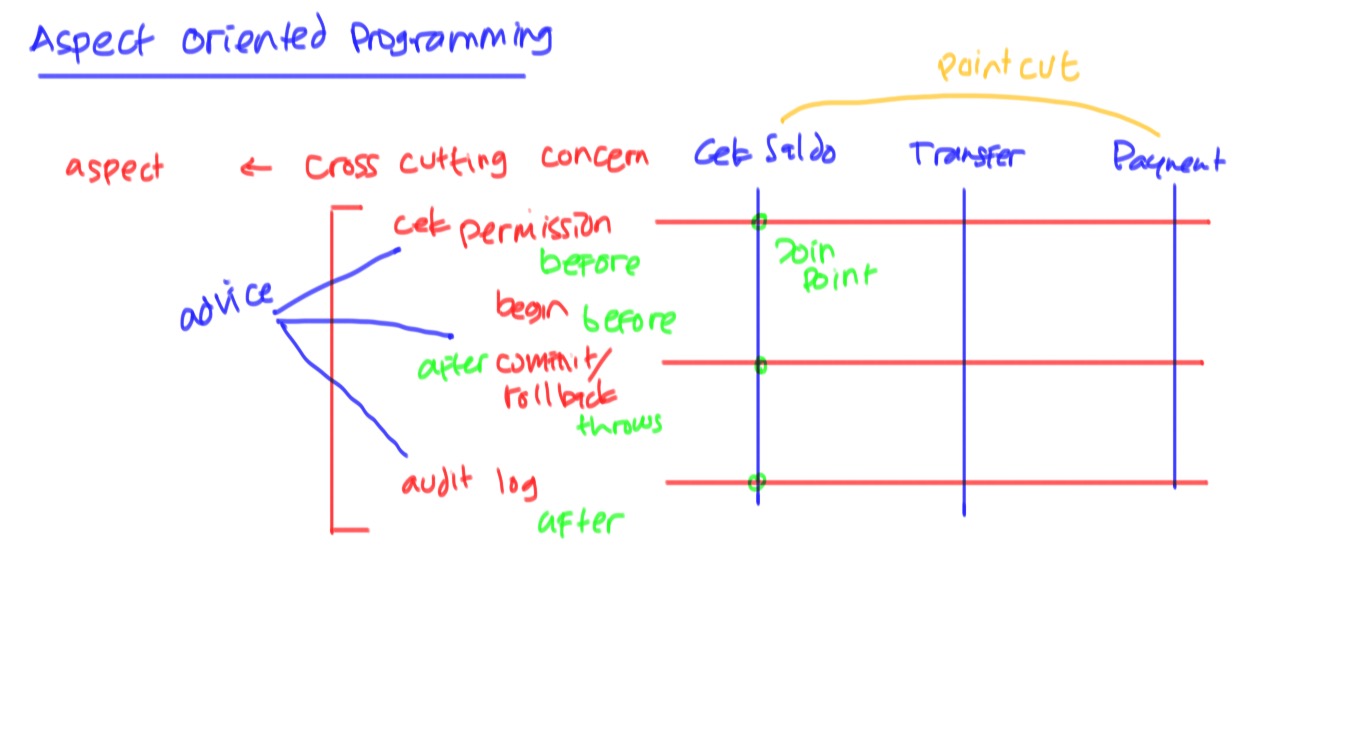 Aspect oriented Programming
Pointcut
aspect ← Cross cutting concern
Cek Saldo
Transfer
Payment
cek permission
before
Join
Point
advice
begin before
after commit/
rollback
throws
audit log
after